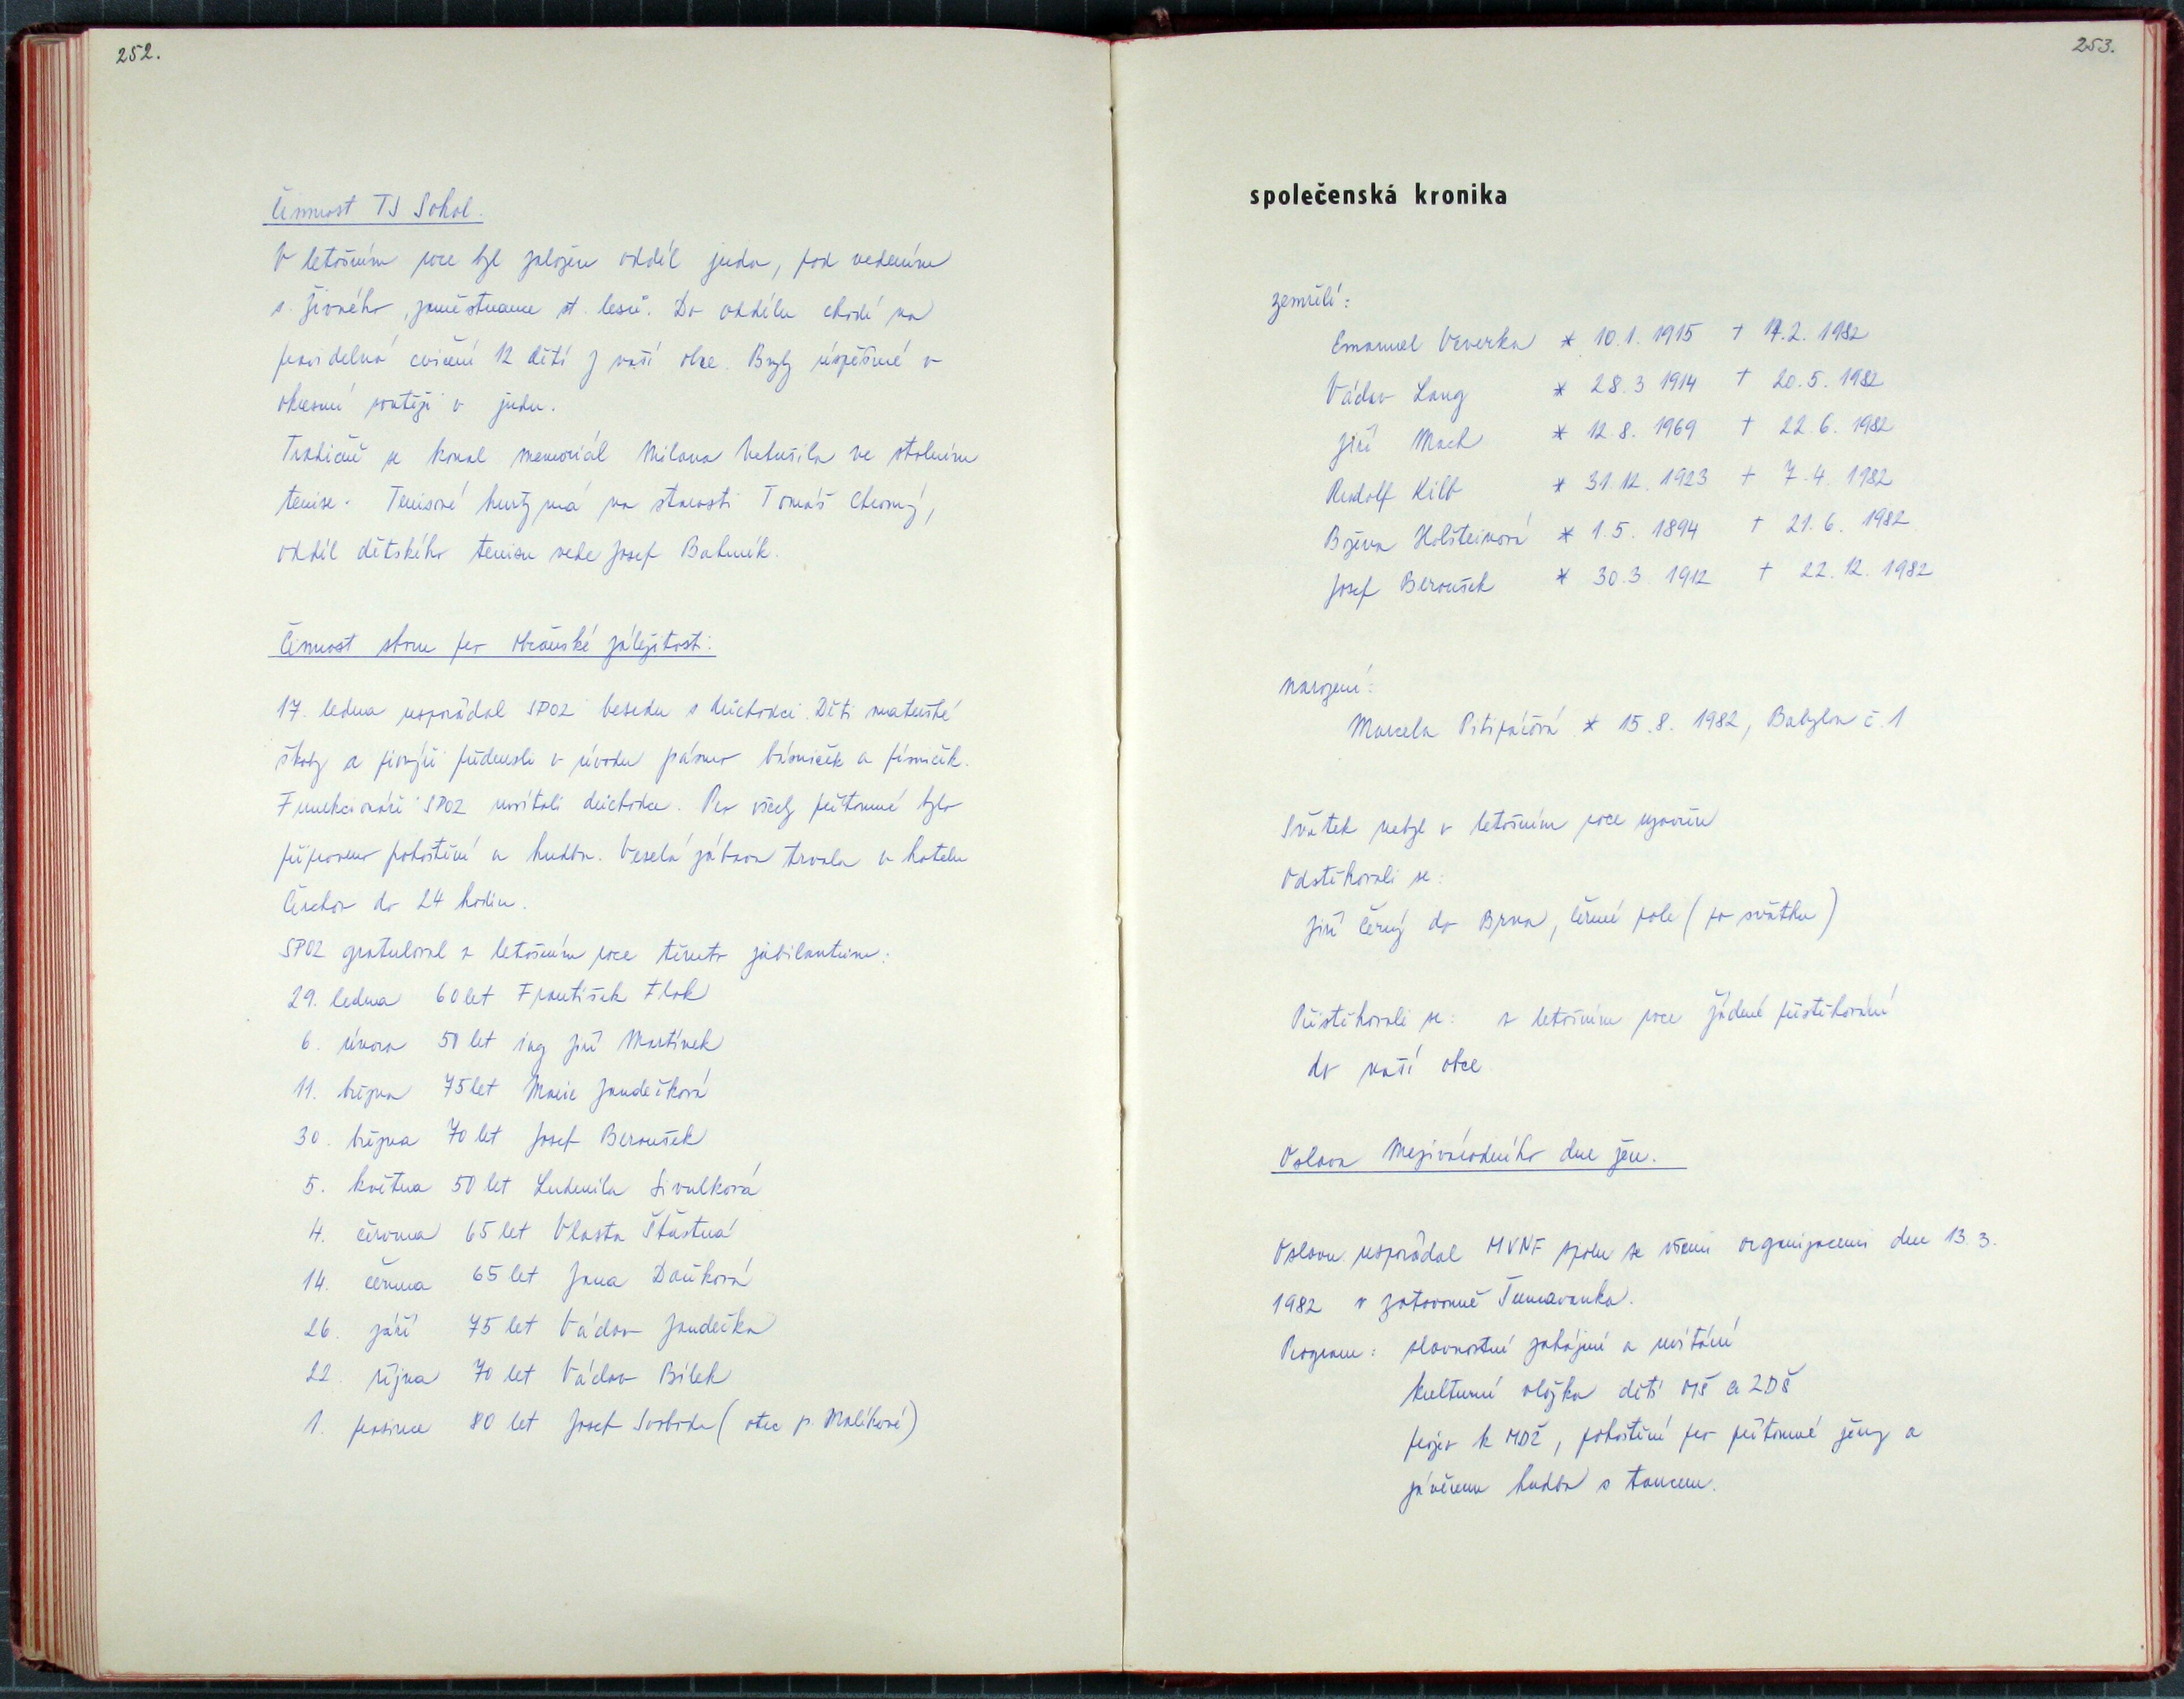 252.
Činnost TJ Sokol.
V letošním roce byl založen oddíl juda, pod vedením
s. Živného, zaměstnance st. lesů. Do oddílu chodí na
pravidelná cvičení 12 dětí z naší obce. Byly úspěšné v
okresní soutěži v judu.
Tradičně se konal memoriál Milana ve stolním
tenise. Tenisové kurty má na starosti Tomáš Chromý,
oddíl dětského tenisu vede Josef
Činnost sboru pro občanské záležitosti:
17. ledna uspořádal SPOZ besedu s důchodci. Děti mateřské
školy a pionýři přednesli v úvodu pásmo básniček a písniček.
Funkcionáři SPOZ uvítali důchodce. Pro všechny přítomné bylo
připraveno pohoštění a hudba. Veselá zábava trvala v hotelu
Čerchov do 24 hodin.
SPOZ gratuloval v letošním roce těmto jubilantům:
29. ledna 60 let František Flok
6. února 50 let ing Jiří Martínek
11. března 75 let Marie Jandečková
30. března 70 let Josef Beroušek
5. května 50 let Ludmila Sivulková
4. června 65 let Vlasta Šťastná
14. června 65 let Jana Daňková
26. září 75 let Václav Jandečka
22. října 70 let Václav Bílek
1. prosince 80 let Josef Svoboda (otec p. Malíkové)
253.
společenská kronika
zemřelí:
Emanuel Veverka * 10.1. 1915 + 17.2. 1982
Václav Lang * 28.3 1914 + 20.5. 1982
Jiří Mach * 12.8. 1969 + 22.6. 1982
Rudolf Kilb * 31.12. 1923 + 7.4. 1982
Božena Holšteinová * 1.5. 1894 + 21.6. 1982
Josef Beroušek * 30.3. 1912 + 22.12. 1982
narození:
Marcela Pitipáčová * 15.8. 1982, Babylon č.1
Sňatek nebyl v letošním roce uzavřen
Odstěhovali se:
Jiří Černý do Brna, Černé pole (po sňatku)
Přistěhovali se: v letošním roce žádné přistěhování
do naší obce
Oslava Mezinárodního dne žen.
Oslavu uspořádal MVNF spolu se všemi organizacemi dne 13.3.
1982 v zotavovně Šumavanka.
Program: slavnostní zahájení a uvítání
kulturní vložka dětí MŠ a ZDŠ
projev k MDŽ, pohoštění pro přítomné ženy a
závěrem hudba s tancem.